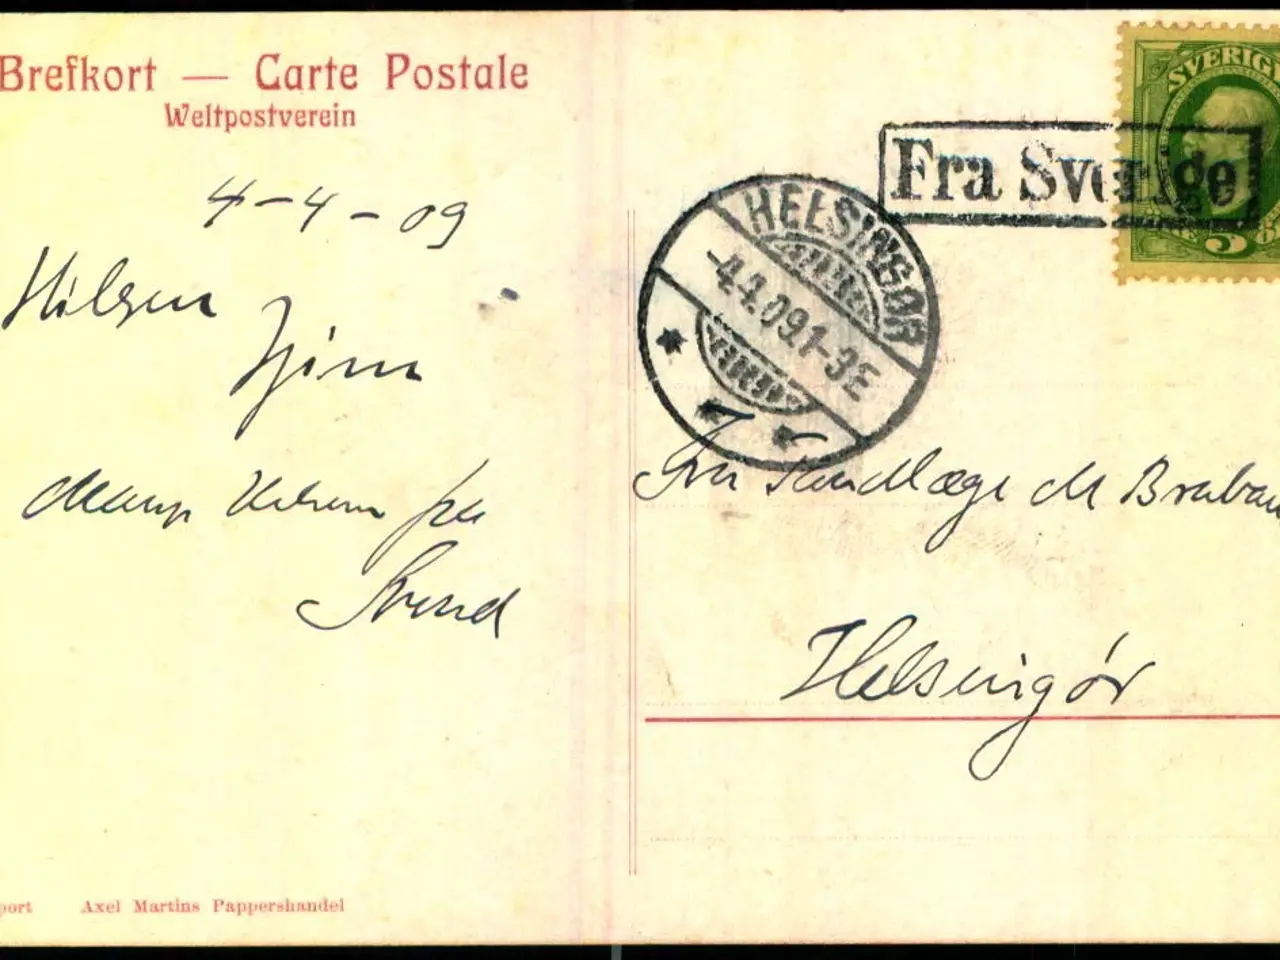 Brefkort — Carte Postale
Weltpostverein
4-4-09
Hilsen
Hjem
Hilsen fra
Svend
port Axel Martins Pappershandel
SVERIGE
5
Fra Sverige
HELSINGØR
-4.4.09.1-3E
Fru Tandlæge M Braban
Helsingør